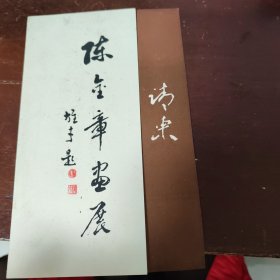 陈金章画展
雄才题
请柬